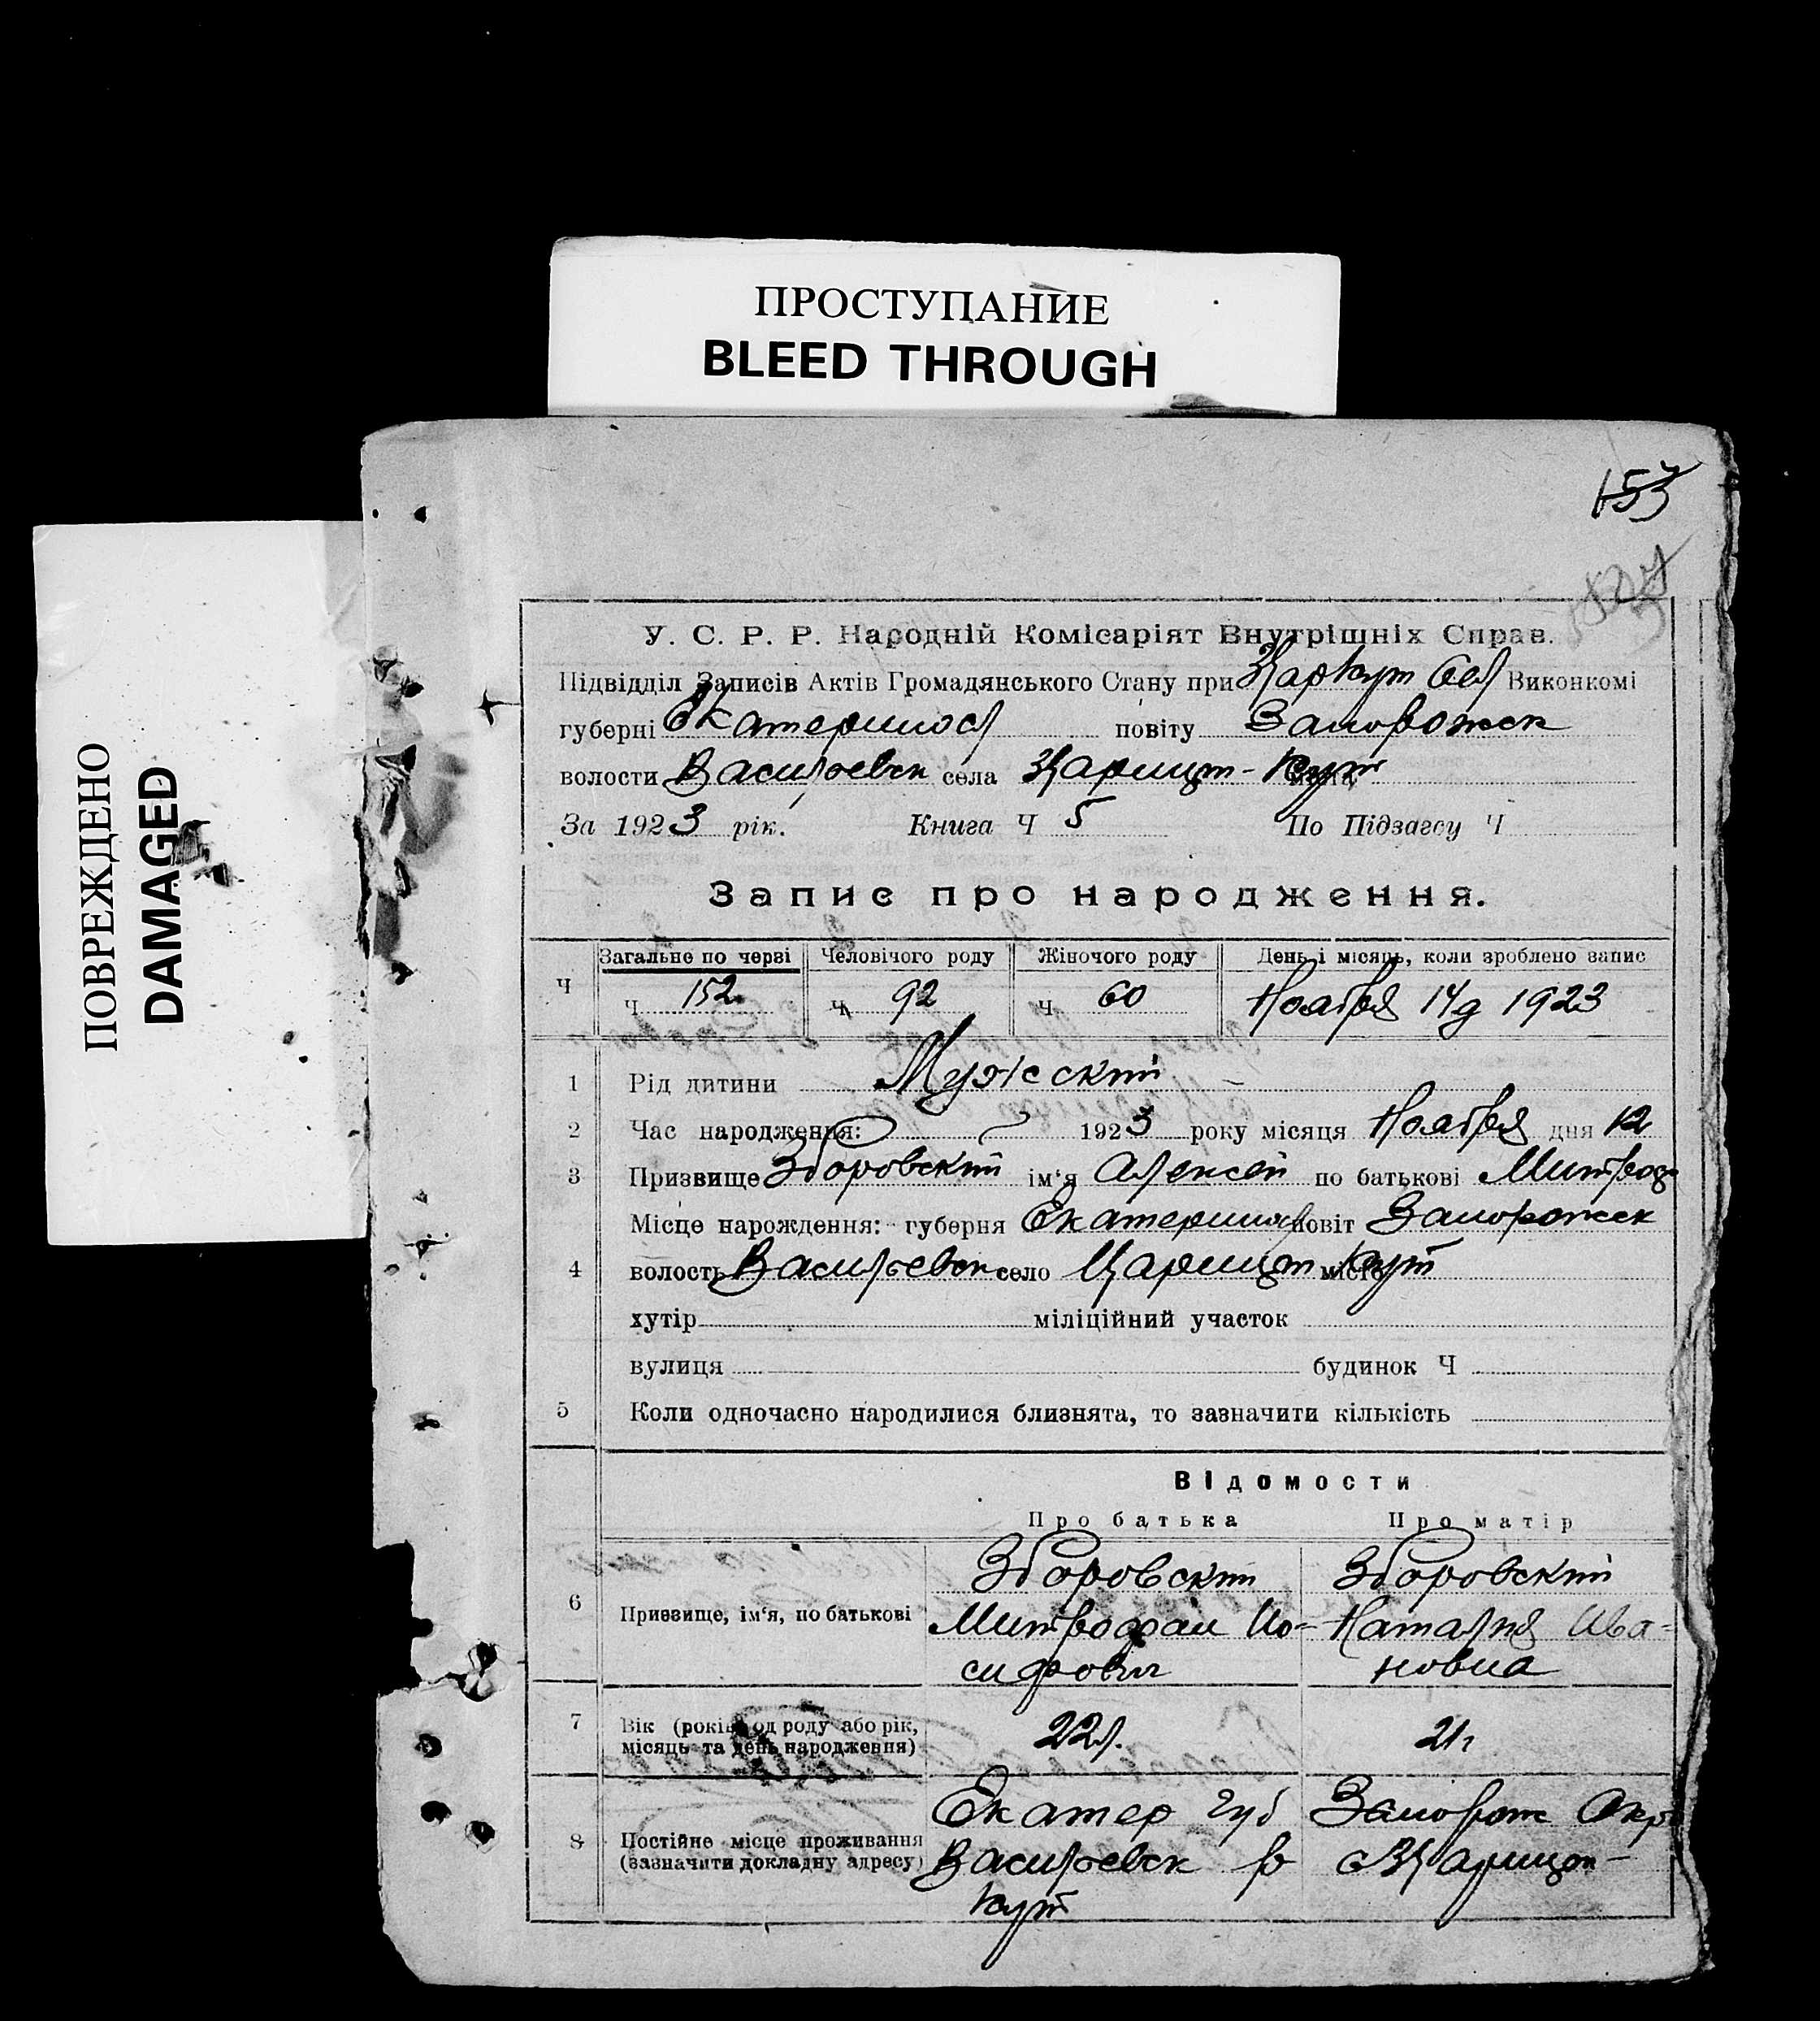 ПРОСТУПАНИЕ
BLEED THROUGH
ПОВРЕЖДЕНО
DAMAGED
153
У. С. Р. Р. Народній Комісаріят Внутрішніх Справ.
Підвідділ Записів Актів Громадянського Стану при Царкут Сел Виконкомі
губерні Екатериносл повіту Запорожск
волости Васильевск села Царицын-Кут
За 1923 рік. Книга Ч 5 По Підзагсу Ч
Запис про народження.
Ч Загальне по черзі Человічого роду Жіночого роду День і місяць, коли зроблено запис
Ч 152 Ч 92 Ч 60 Ноября 14д 1923
1 Рід дитини Мужский
2 Час народження: 1923 року місяця Ноября дня 12
3 Призвище Зборовский ім'я Алексей по батькові Митроф
Місце народження: губерня Екатериносл повіт Запорожск
4 волость Васильевск село Царицын Кут місто
хутір міліційний участок
вулиця будинок Ч
5 Коли одночасно народилися близнята, то зазначити кількість
Відомости
Про батька Про матір
6 Призвище, ім'я, по батькові
Зборовский
Митрофан Ио-
сифович
Зборовский
Наталия Ива-
новна
7 Вік (років од роду або рік,
місяць та день народження)
22л. 21г
8 Постійне місце проживання
(зазначити докладну адресу)
Екатер губ Запорож Окр
Васильевск в с Царицын-
Кут